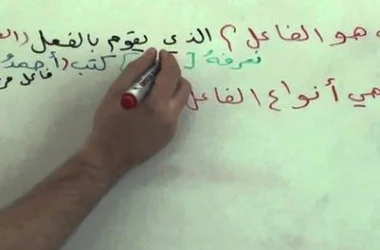 هو الفاعل؟ الذي يقوم بالفعل
نعرفهُ [ ] كتب (أحمدُ
فاعل
هي أنواع الفاعل